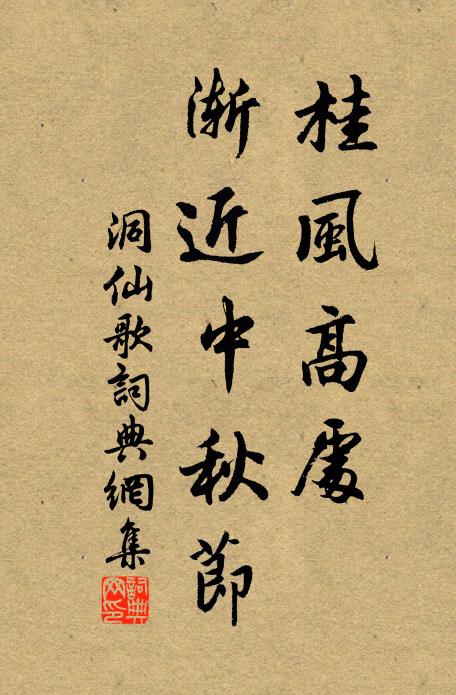 桂風高處
漸近中秋節
洞仙歌詞典網集
詞典網印